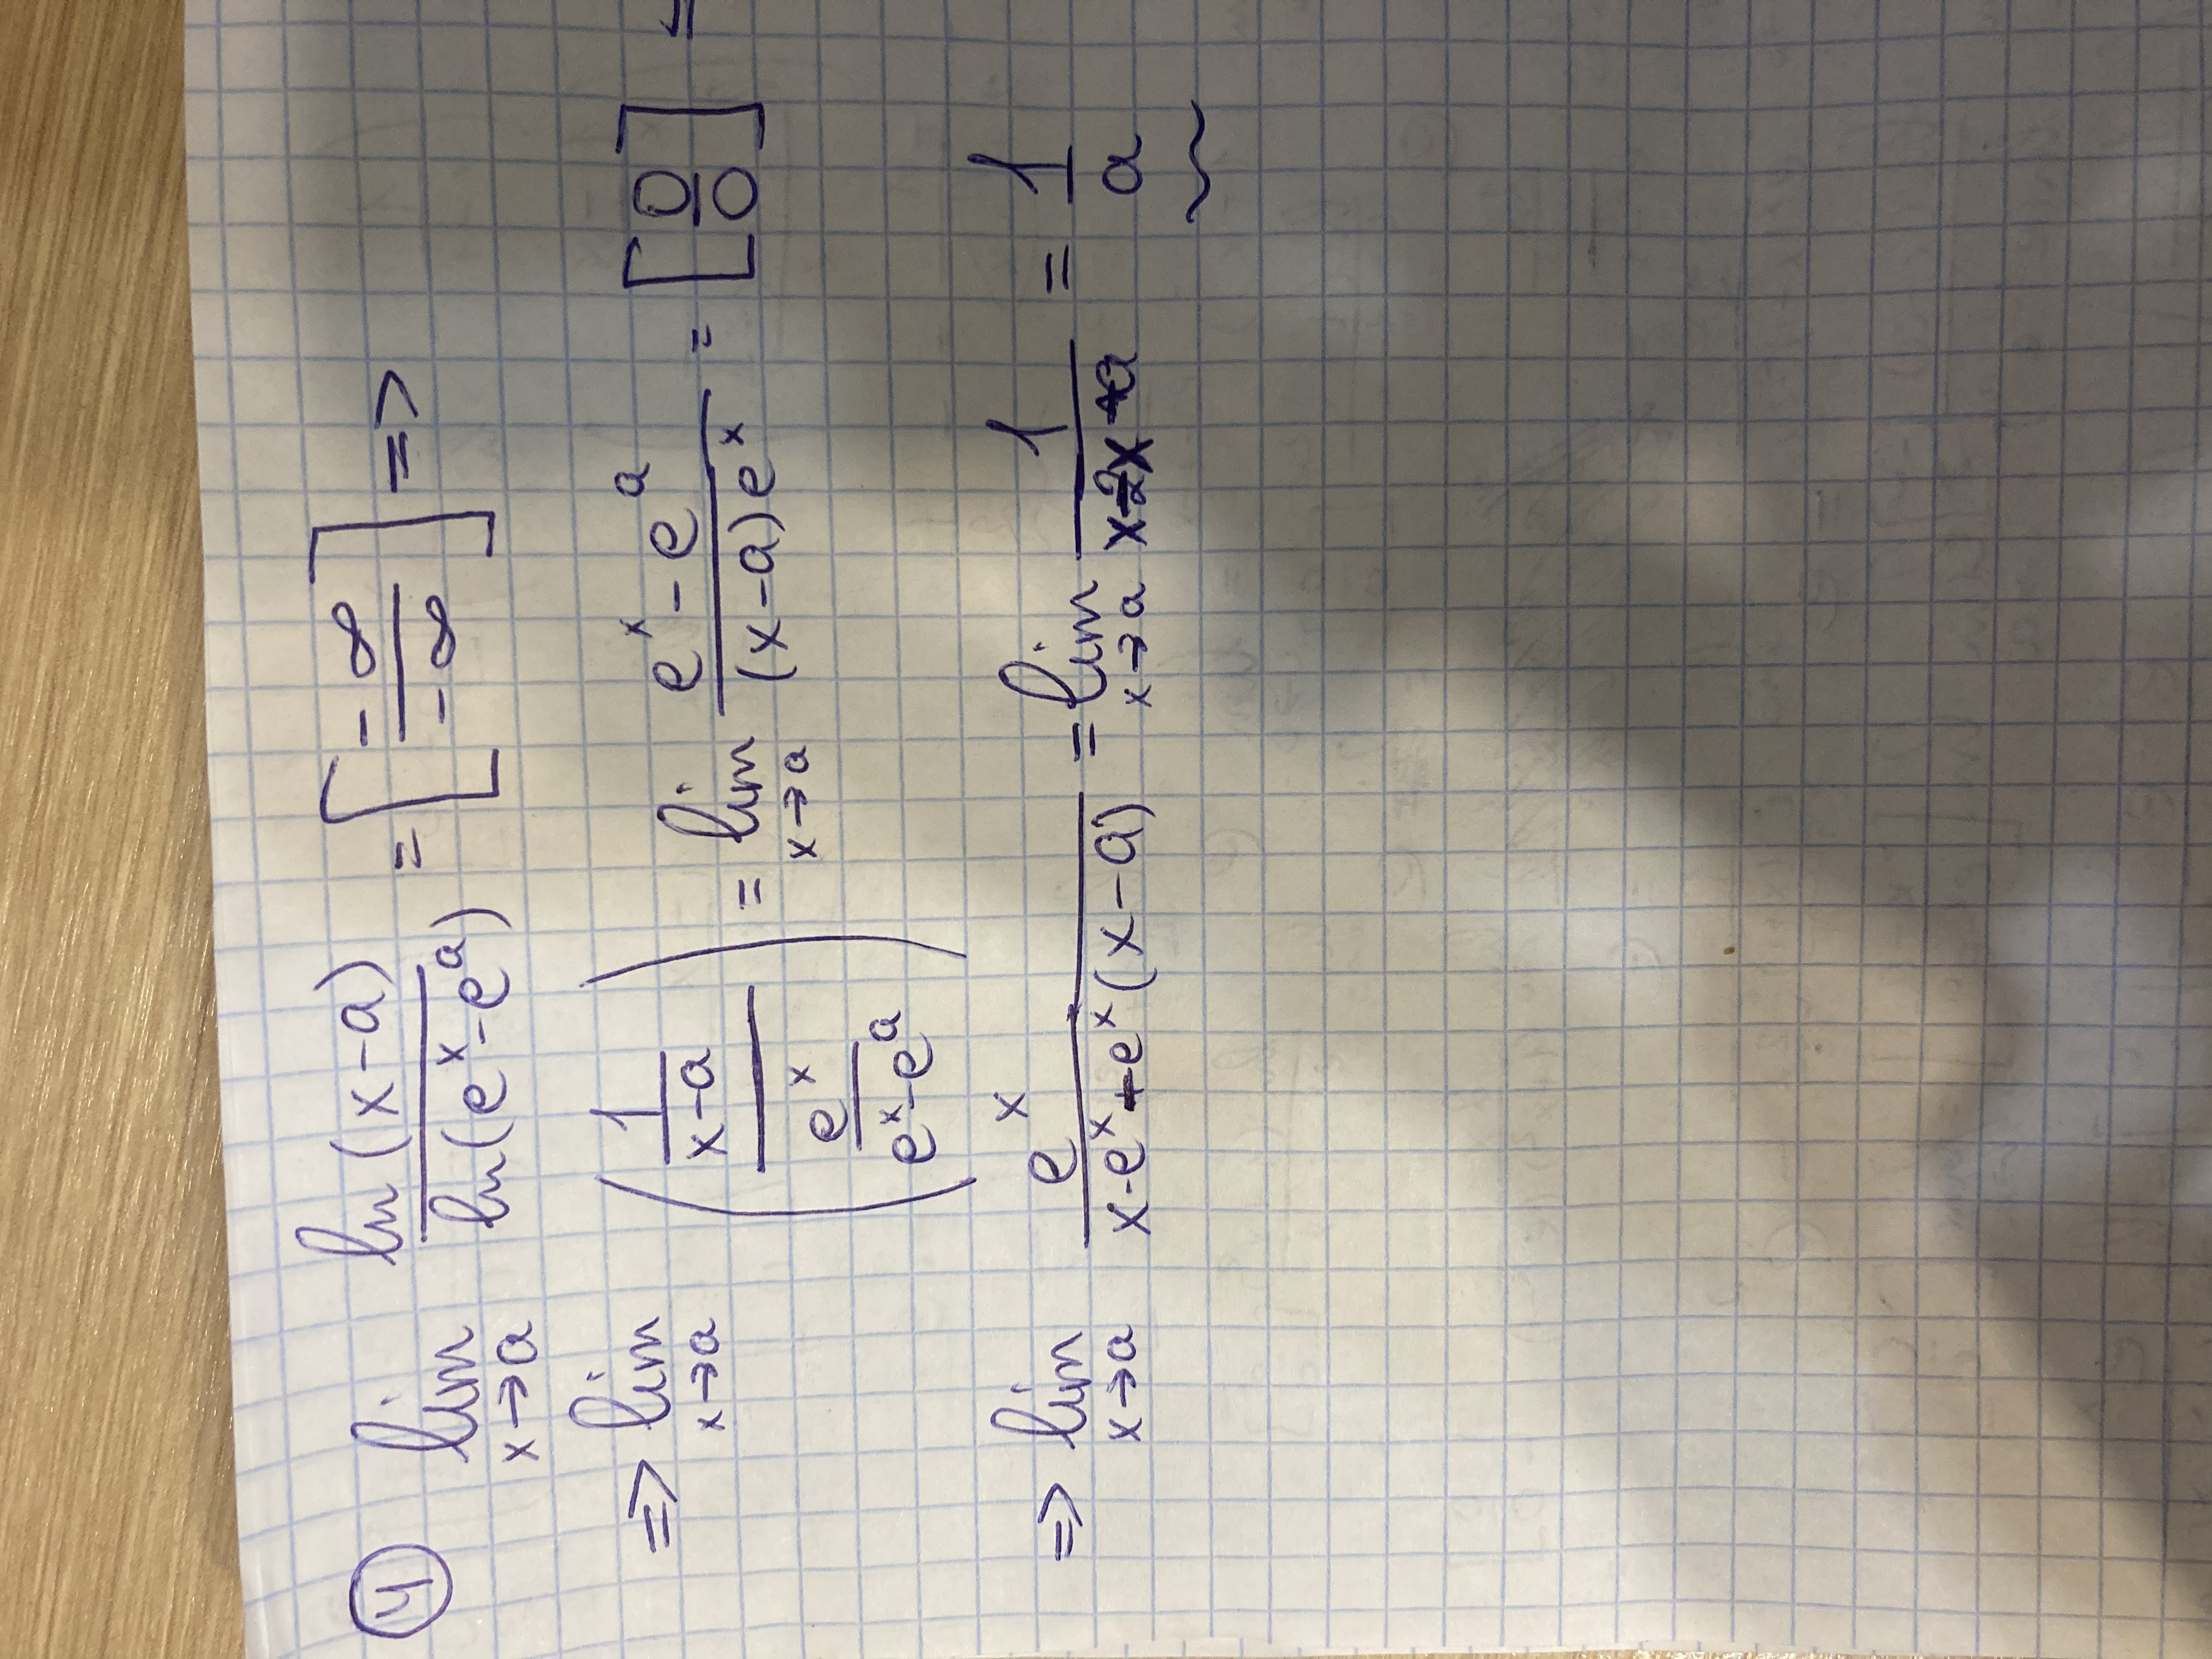 ④ lim x→a ln(x-a) / ln(e^x - e^a) = [ -∞ / -∞ ] =>
=> lim x→a ( (1/(x-a)) / (e^x/(e^x-e^a)) ) = lim x→a (e^x - e^a) / ((x-a)e^x) = [ 0/0 ] =
=> lim x→a e^x / (x·e^x + e^x(x-a)) = lim x→a 1 / (2x-a) = 1/a